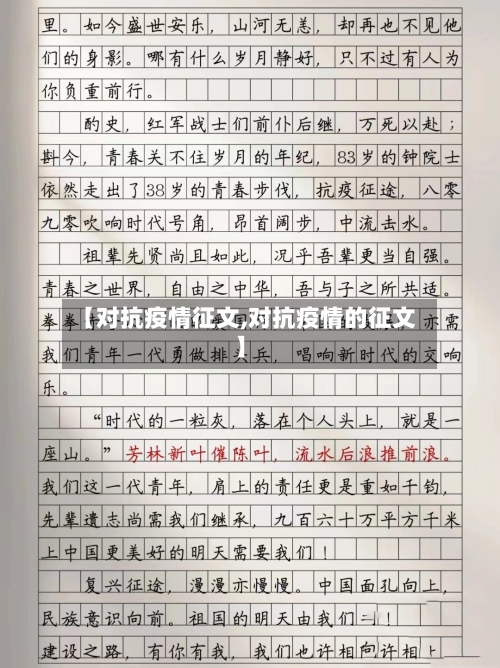 里。如今盛世安乐，山河无恙，却再也不见他
们的身影。哪有什么岁月静好，只不过有人为
你负重前行。
酌史，红军战士们前仆后继，万死以赴；
斟今，青春关不住岁月的年纪，83岁的钟院士
依然走出了38岁的青春步伐，抗疫征途，八零
九零吹响时代号角，昂首阔步，中流击水。
祖辈先贤尚且如此，况乎吾辈更当自强。
青春之世界，自由之中华，吾与子之所共适。
拳拳
亦需
【对抗疫情征文,对抗疫情的征文
】
我们青年一代勇做排头兵，唱响新时代的交响
乐。
“时代的一粒灰，落在个人头上，就是一
座山。”芳林新叶催陈叶，流水后浪推前浪。
我们这一代青年，肩上的责任更是重如千钧，
先辈遗志尚需我们继承，九百六十万平方千米
上中国更美好的明天需要我们！
复兴征途，漫漫亦慢慢。中国面孔向上，
民族意识向前。祖国的明天由我们
！
建设之路，有你有我，我们也许相向许相上